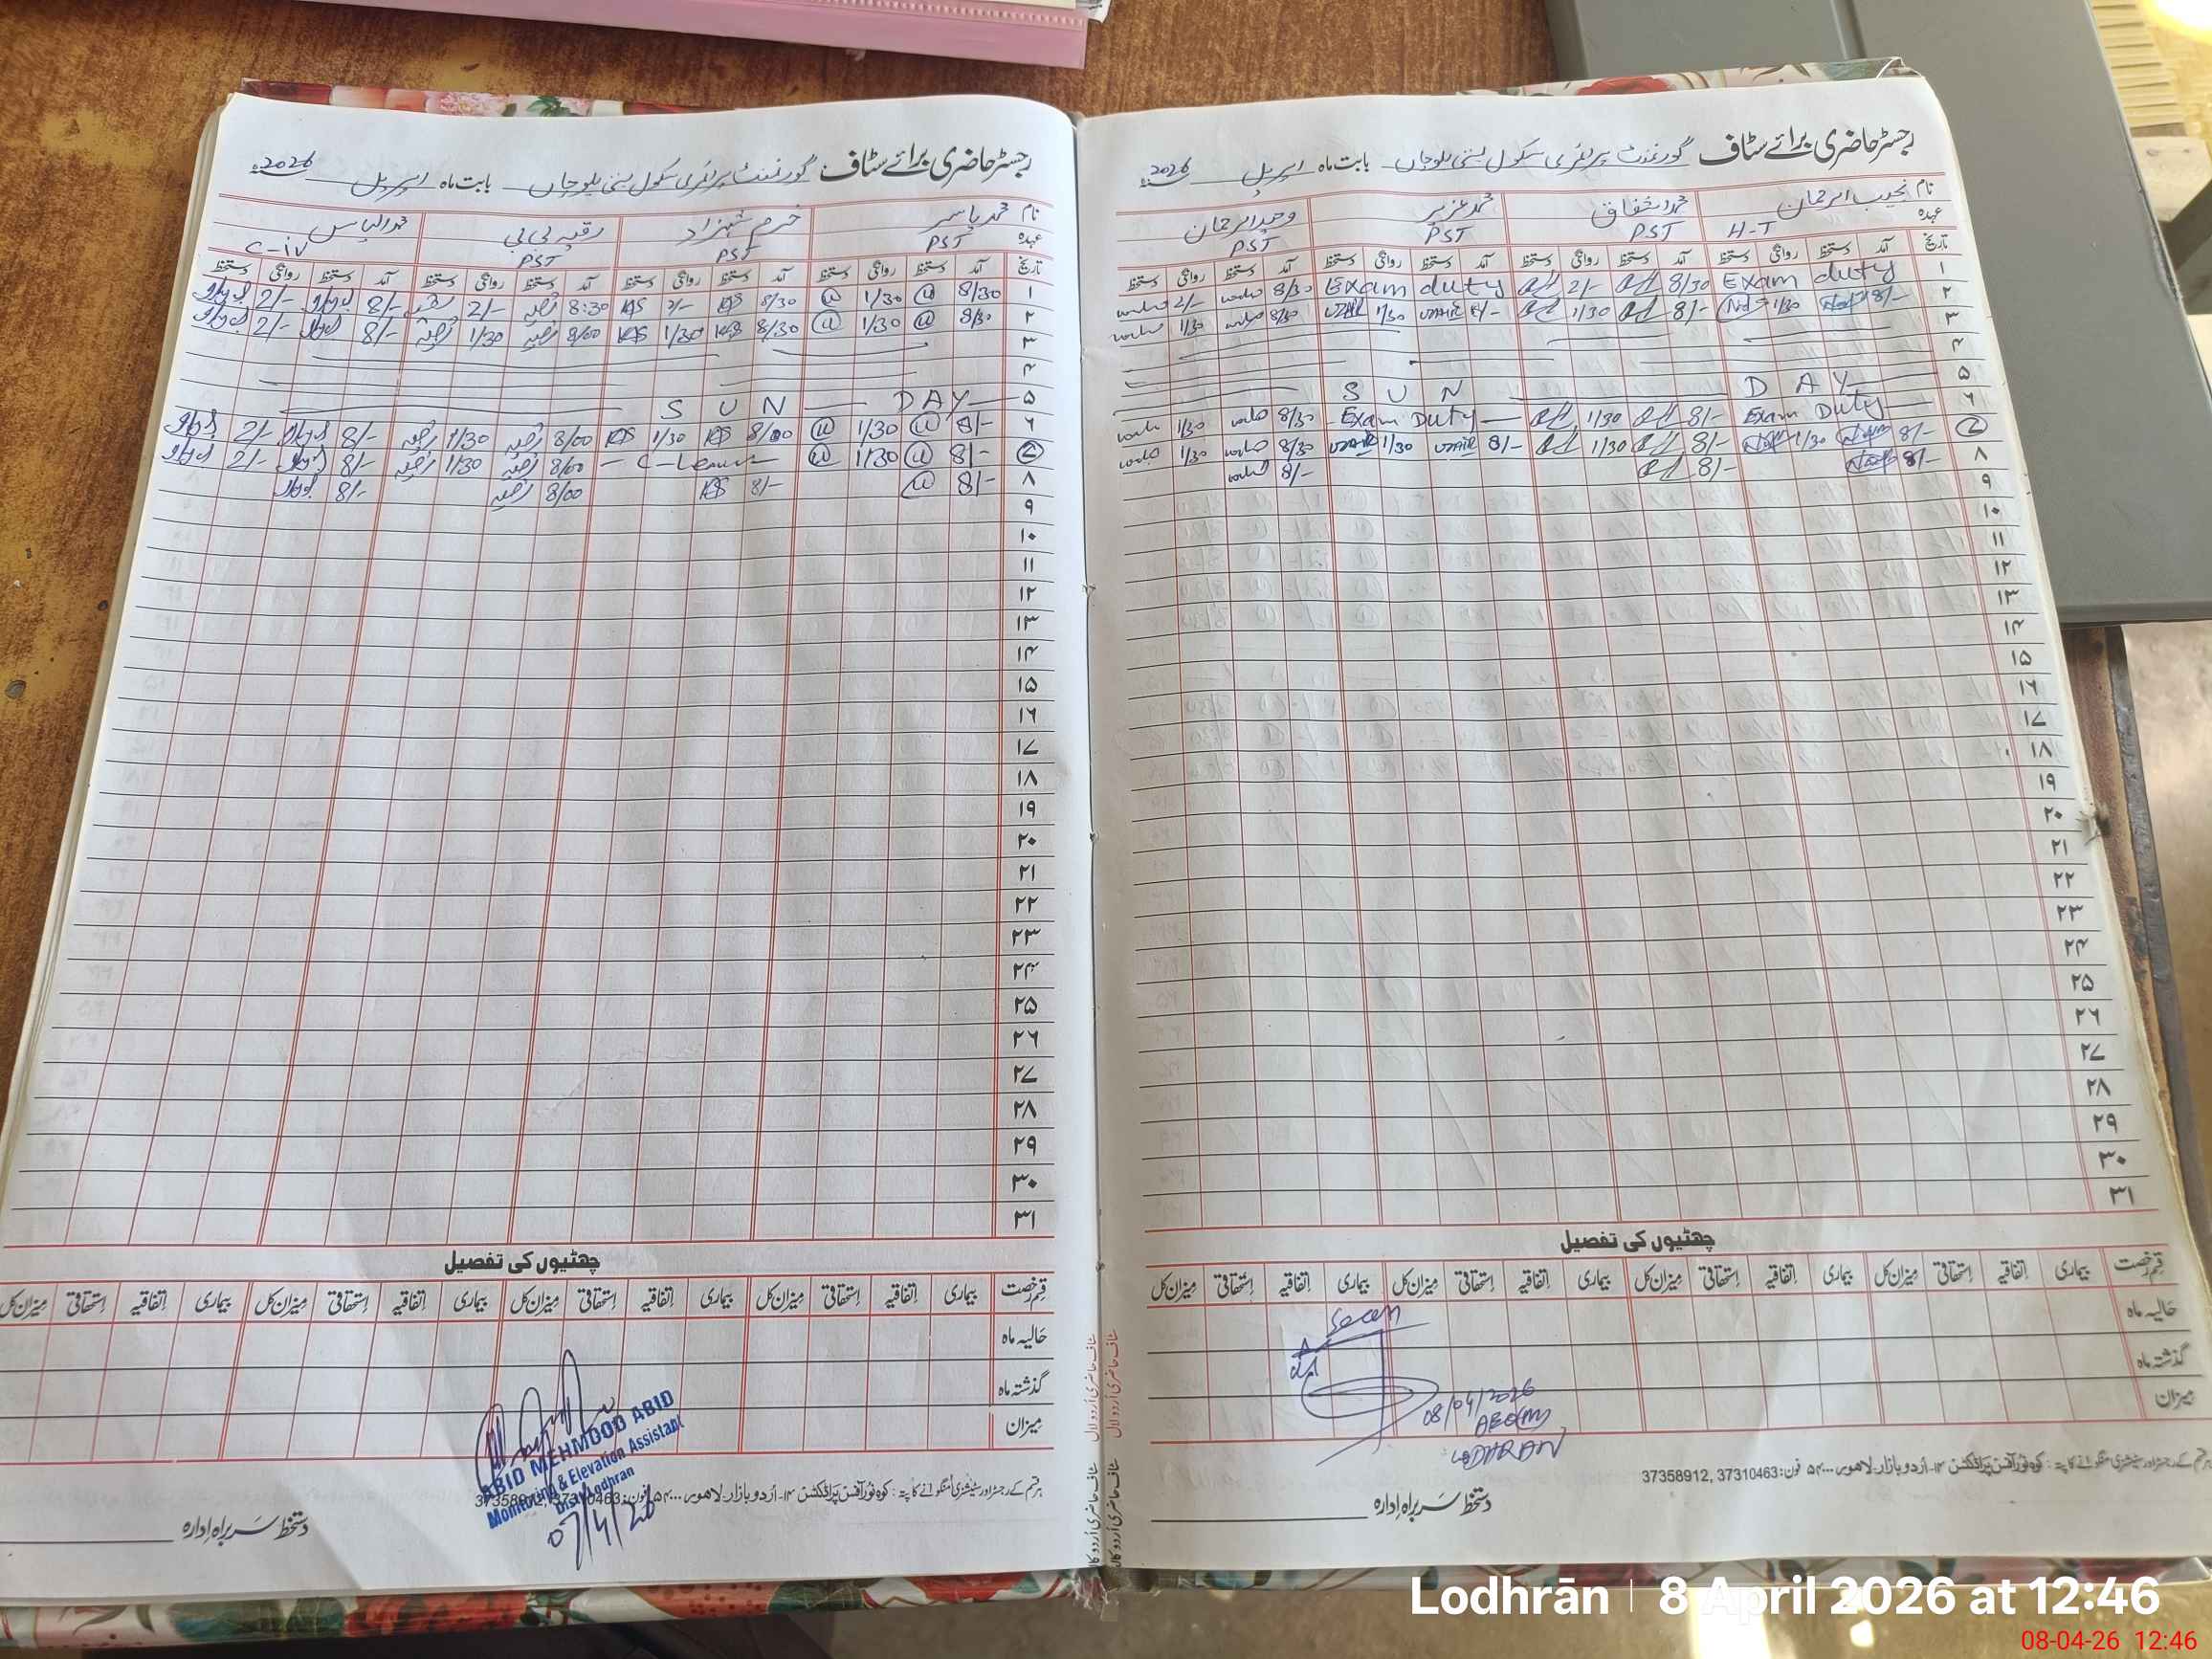 رجسٹر حاضری برائے سٹاف گورنمنٹ پرائمری سکول بستی بلوچاں بابت ماہ اپریل 2026ء
نام نجیب الرحمان محمد اشفاق محمد عزیر وحید الرحمان
عہدہ H-T PST PST PST
تاریخ آمد دستخط روانگی دستخط آمد دستخط روانگی دستخط آمد دستخط روانگی دستخط آمد دستخط روانگی دستخط
۱ Exam duty 8/30 2/- Exam duty 8/30 2/-
۲ 8/- 1/30 8/- 1/30 8/- 1/30 8/30 1/30
۳
۴
۵ SUN DAY
۶ Exam Duty 8/- 1/30 Exam Duty 8/30 1/30
۷ 8/- 1/30 8/- 1/30 8/- 1/30 8/30 1/30
۸ 8/- 8/- 8/-
۹
۱۰
۱۱
۱۲
۱۳
۱۴
۱۵
۱۶
۱۷
۱۸
۱۹
۲۰
۲۱
۲۲
۲۳
۲۴
۲۵
۲۶
۲۷
۲۸
۲۹
۳۰
۳۱
چھٹیوں کی تفصیل
قسم رخصت بیماری اتفاقیہ استحقاقی میزان کل بیماری اتفاقیہ استحقاقی میزان کل بیماری اتفاقیہ استحقاقی میزان کل بیماری اتفاقیہ استحقاقی میزان کل
حالیہ ماہ
گذشتہ ماہ
میزان
Seen
08/04/2026
AEO(M)
LODHRAN
ہر قسم کے رجسٹر اور سٹیشنری منگوانے کا پتہ : کوہ نور آفس پراڈکشن ۱۴۔اُردو بازار۔لاہور فون: 37310463 ,37358912
دستخط سربراہ ادارہ
رجسٹر حاضری برائے سٹاف گورنمنٹ پرائمری سکول بستی بلوچاں بابت ماہ اپریل 2026ء
نام محمد یاسر خرم شہزاد رقیہ بی بی محمد الیاس
عہدہ PST PST PST C-iv
تاریخ آمد دستخط روانگی دستخط آمد دستخط روانگی دستخط آمد دستخط روانگی دستخط آمد دستخط روانگی دستخط
۱ 8/30 1/30 8/30 2/- 8:30 2/- 8/- 2/-
۲ 8/30 1/30 8/30 1/30 8/00 رقیہ 1/30 رقیہ 8/- 2/-
۳
۴
۵ SUN DAY
۶ 8/- 1/30 8/00 1/30 8/00 رقیہ 1/30 رقیہ 8/- 2/-
۷ 8/- 1/30 C-Leave 8/00 رقیہ 1/30 رقیہ 8/- 2/-
۸ 8/- 8/- 8/00 رقیہ 8/-
۹
۱۰
۱۱
۱۲
۱۳
۱۴
۱۵
۱۶
۱۷
۱۸
۱۹
۲۰
۲۱
۲۲
۲۳
۲۴
۲۵
۲۶
۲۷
۲۸
۲۹
۳۰
۳۱
چھٹیوں کی تفصیل
قسم رخصت بیماری اتفاقیہ استحقاقی میزان کل بیماری اتفاقیہ استحقاقی میزان کل بیماری اتفاقیہ استحقاقی میزان کل بیماری اتفاقیہ استحقاقی میزان کل
حالیہ ماہ
گذشتہ ماہ
میزان
ABID MEHMOOD ABID
Monitoring & Elevation Assistant
Distt Lodhran
07/4/26
ہر قسم کے رجسٹر اور سٹیشنری منگوانے کا پتہ : کوہ نور آفس پراڈکشن ۱۴۔اُردو بازار۔لاہور فون: 37310463 ,37358912
دستخط سربراہ ادارہ
Lodhrān | 8 April 2026 at 12:46
08-04-26 12:46